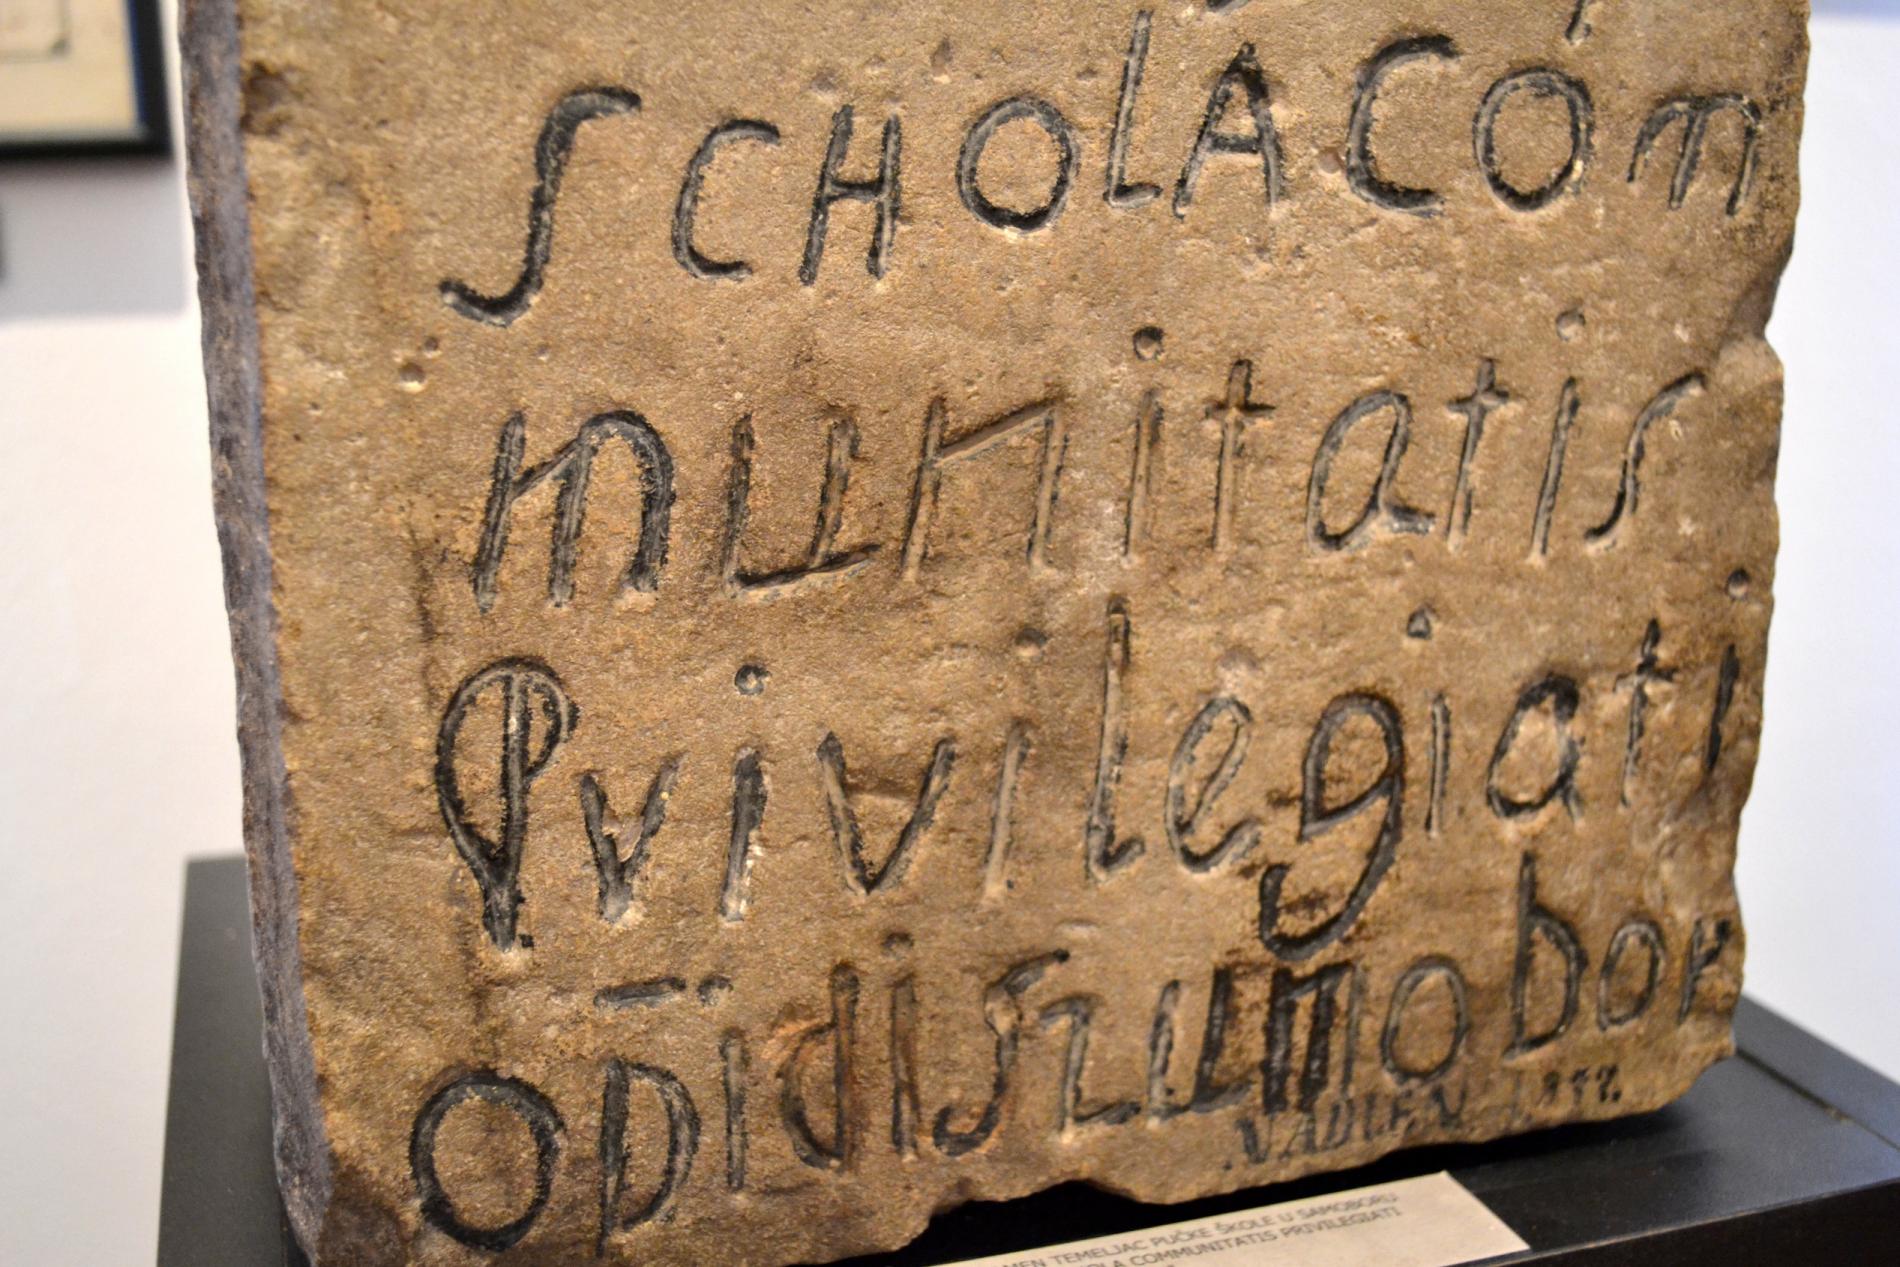 SCHOlA COm
munitatis
Privilegiati
opidi Szumobor
MEN TEMELJAC PUČKE ŠKOLE U SAMOBORU
OLA COMMUNITATIS PRIVILEGIATI